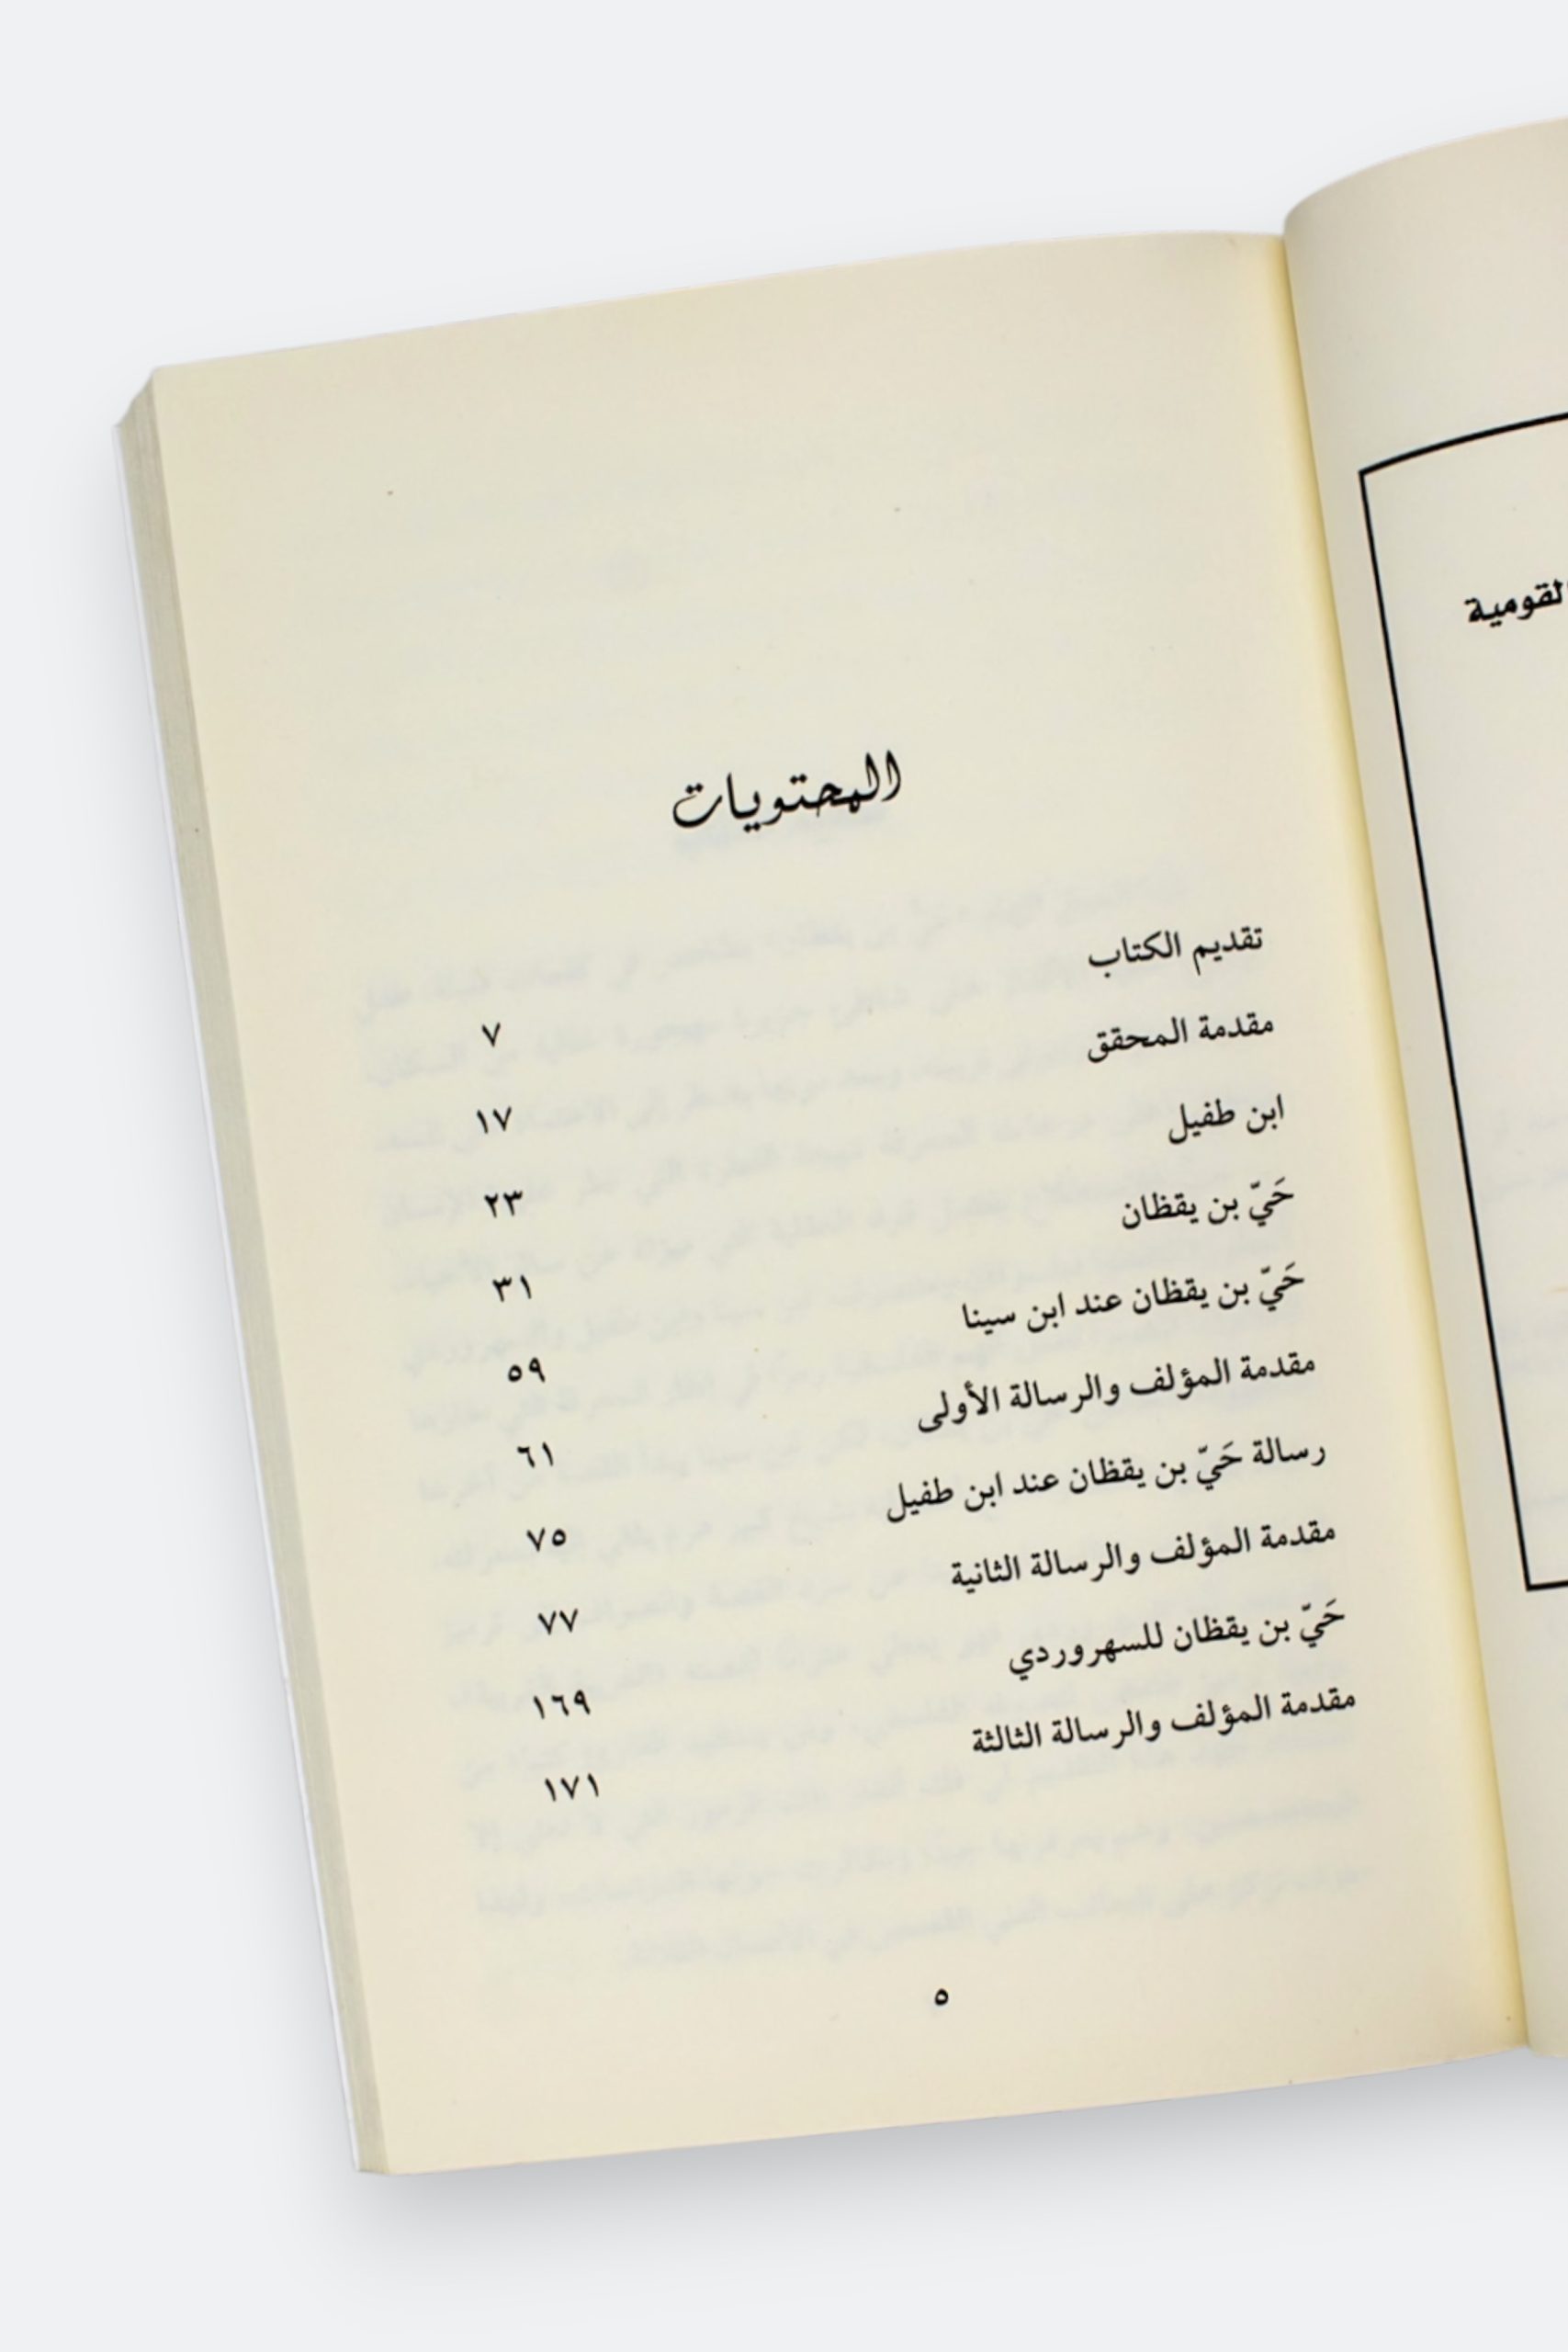 المحتويات
تقديم الكتاب ٧
مقدمة المحقق ١٧
ابن طفيل ٢٣
حَيّ بن يقظان ٣١
حَيّ بن يقظان عند ابن سينا ٥٩
مقدمة المؤلف والرسالة الأولى ٦١
رسالة حَيّ بن يقظان عند ابن طفيل ٧٥
مقدمة المؤلف والرسالة الثانية ٧٧
حَيّ بن يقظان للسهروردي ١٦٩
مقدمة المؤلف والرسالة الثالثة ١٧١
٥
القومية